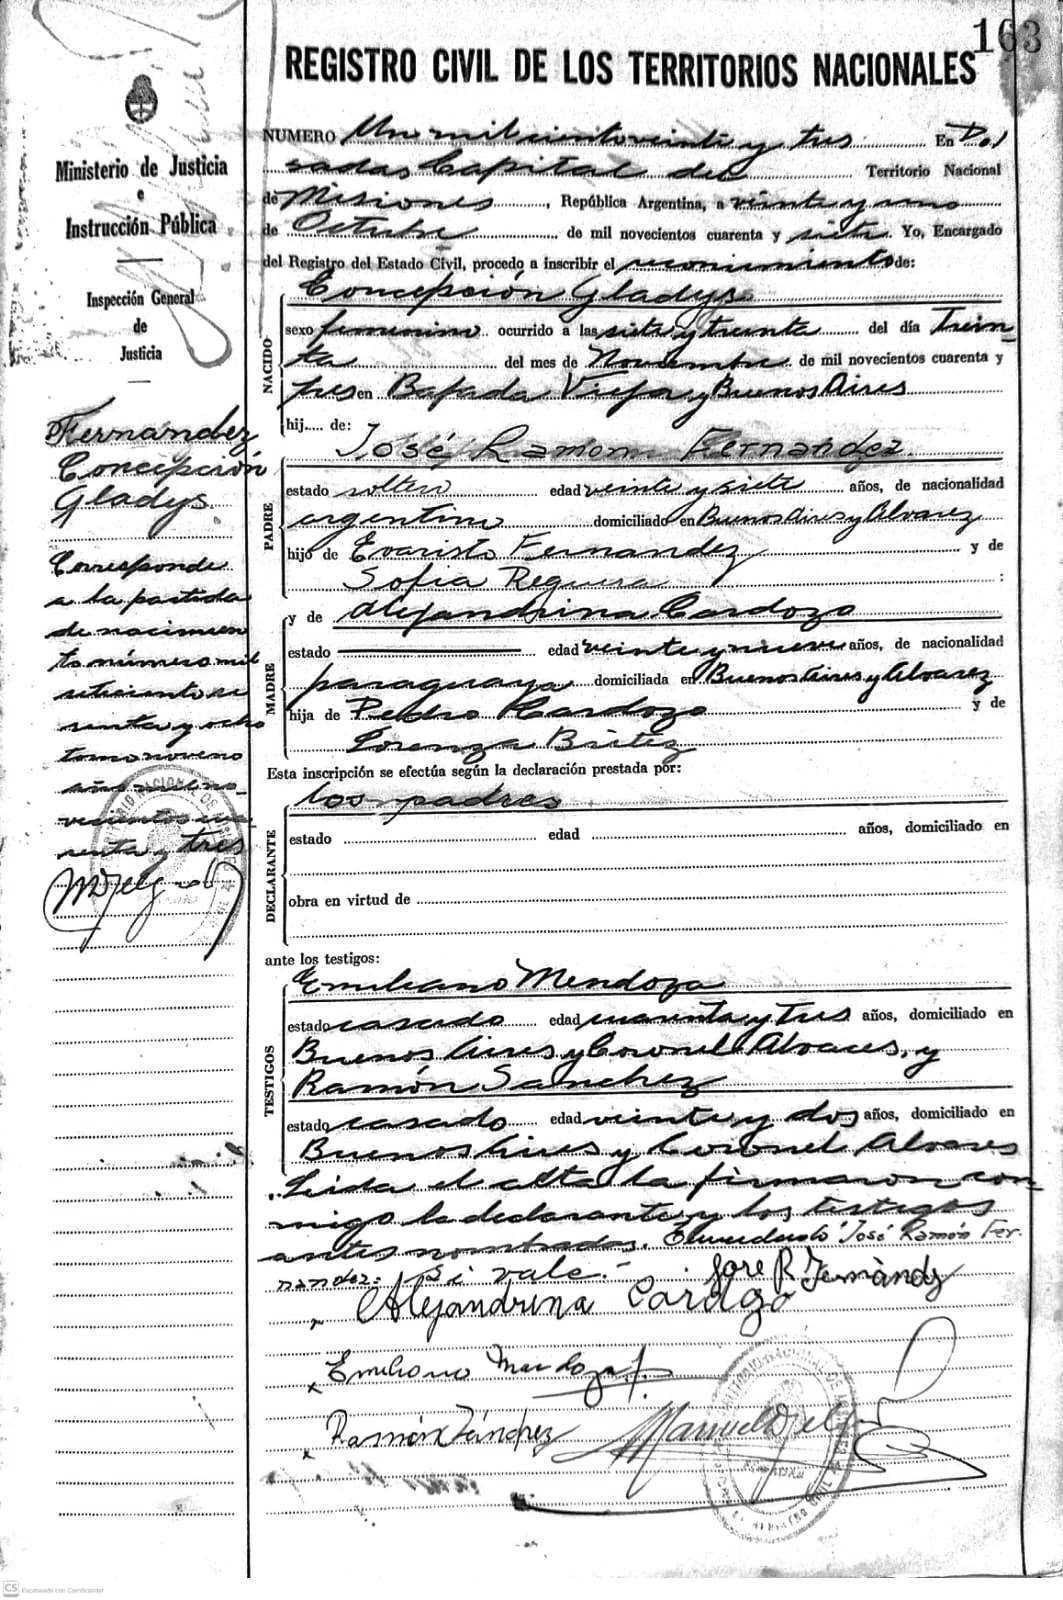 163
REGISTRO CIVIL DE LOS TERRITORIOS NACIONALES
Ministerio de Justicia
e
Instrucción Pública
Inspección General
de
Justicia
Fernandez
Concepción
Gladys.
Corresponde
a la partida
de nacimien
to número mil
setecientos se
senta y ocho
tomo noveno
año mil no-
vecientos cua
renta y tres
NUMERO Un mil ciento veinte y tres En Po
sadas Capital del Territorio Nacional
de Misiones, República Argentina, a veinte y uno
de Octubre de mil novecientos cuarenta y siete. Yo, Encargado
del Registro del Estado Civil, procedo a inscribir el reconocimiento de:
NACIDO
Concepción Gladys
sexo femenino ocurrido a las siete y treinta del día Trein-
ta del mes de Noviembre de mil novecientos cuarenta y
tres en Bajada Vieja y Buenos Aires
hij.... de:
José Ramón Fernandez.
PADRE
estado soltero edad veinte y siete años, de nacionalidad
argentino domiciliado en Buenos Aires y Alvarez
hijo de Evaristo Fernandez y de
Sofia Reguera
y de Alejandrina Cardozo
MADRE
estado edad veinte y nueve años, de nacionalidad
paraguaya domiciliada en Buenos Aires y Alvarez
hija de Pedro Cardozo y de
Lorenza Britez
Esta inscripción se efectúa según la declaración prestada por:
los padres
DECLARANTE
estado edad años, domiciliado en
obra en virtud de
ante los testigos:
Emiliano Mendoza
TESTIGOS
estado casado edad cuarenta y tres años, domiciliado en
Buenos Aires y Coronel Alvares, y
Ramón Sanchez
estado casado edad veinte y dos años, domiciliado en
Buenos Aires y Coronel Alvares
Leida el alta la firmaron con-
migo la declarante y los testigos
antes nombrados. Enmendado José Ramón Fer-
nandez: Si vale.-
Jose R Fernàndz
Alejandrina Cardozo
Emiliano Mendoza
Ramón Sánchez
CS Escaneado con CamScanner